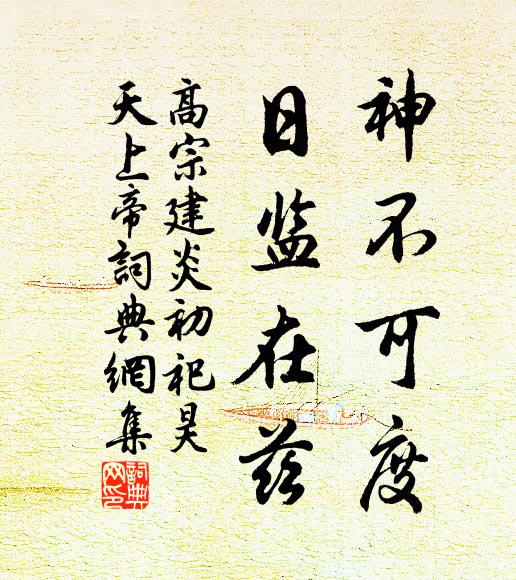 神不可度
日监在兹
高宗建炎初祀昊
天上帝詞典網集
詞典
网印